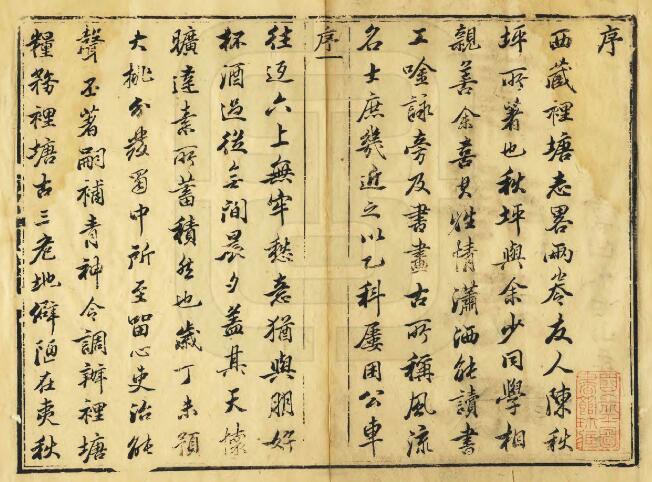 序
西藏裡塘志畧兩卷友人陳秋
坪所著也秋坪與余少同學相
親善余喜其性情瀟洒能讀書
工唫詠旁及書畫古所稱風流
名士庶幾近之以乙科屢困公車
序一
往返六上無牢愁意猶與朋好
杯酒過從無間晨夕蓋其天懷
曠達素所蓄積然也歲丁未領
大挑分發蜀中所至留心吏治能
聲丕著嗣補青神令調辦裡塘
糧務裡塘古三危地僻陋在夷狄